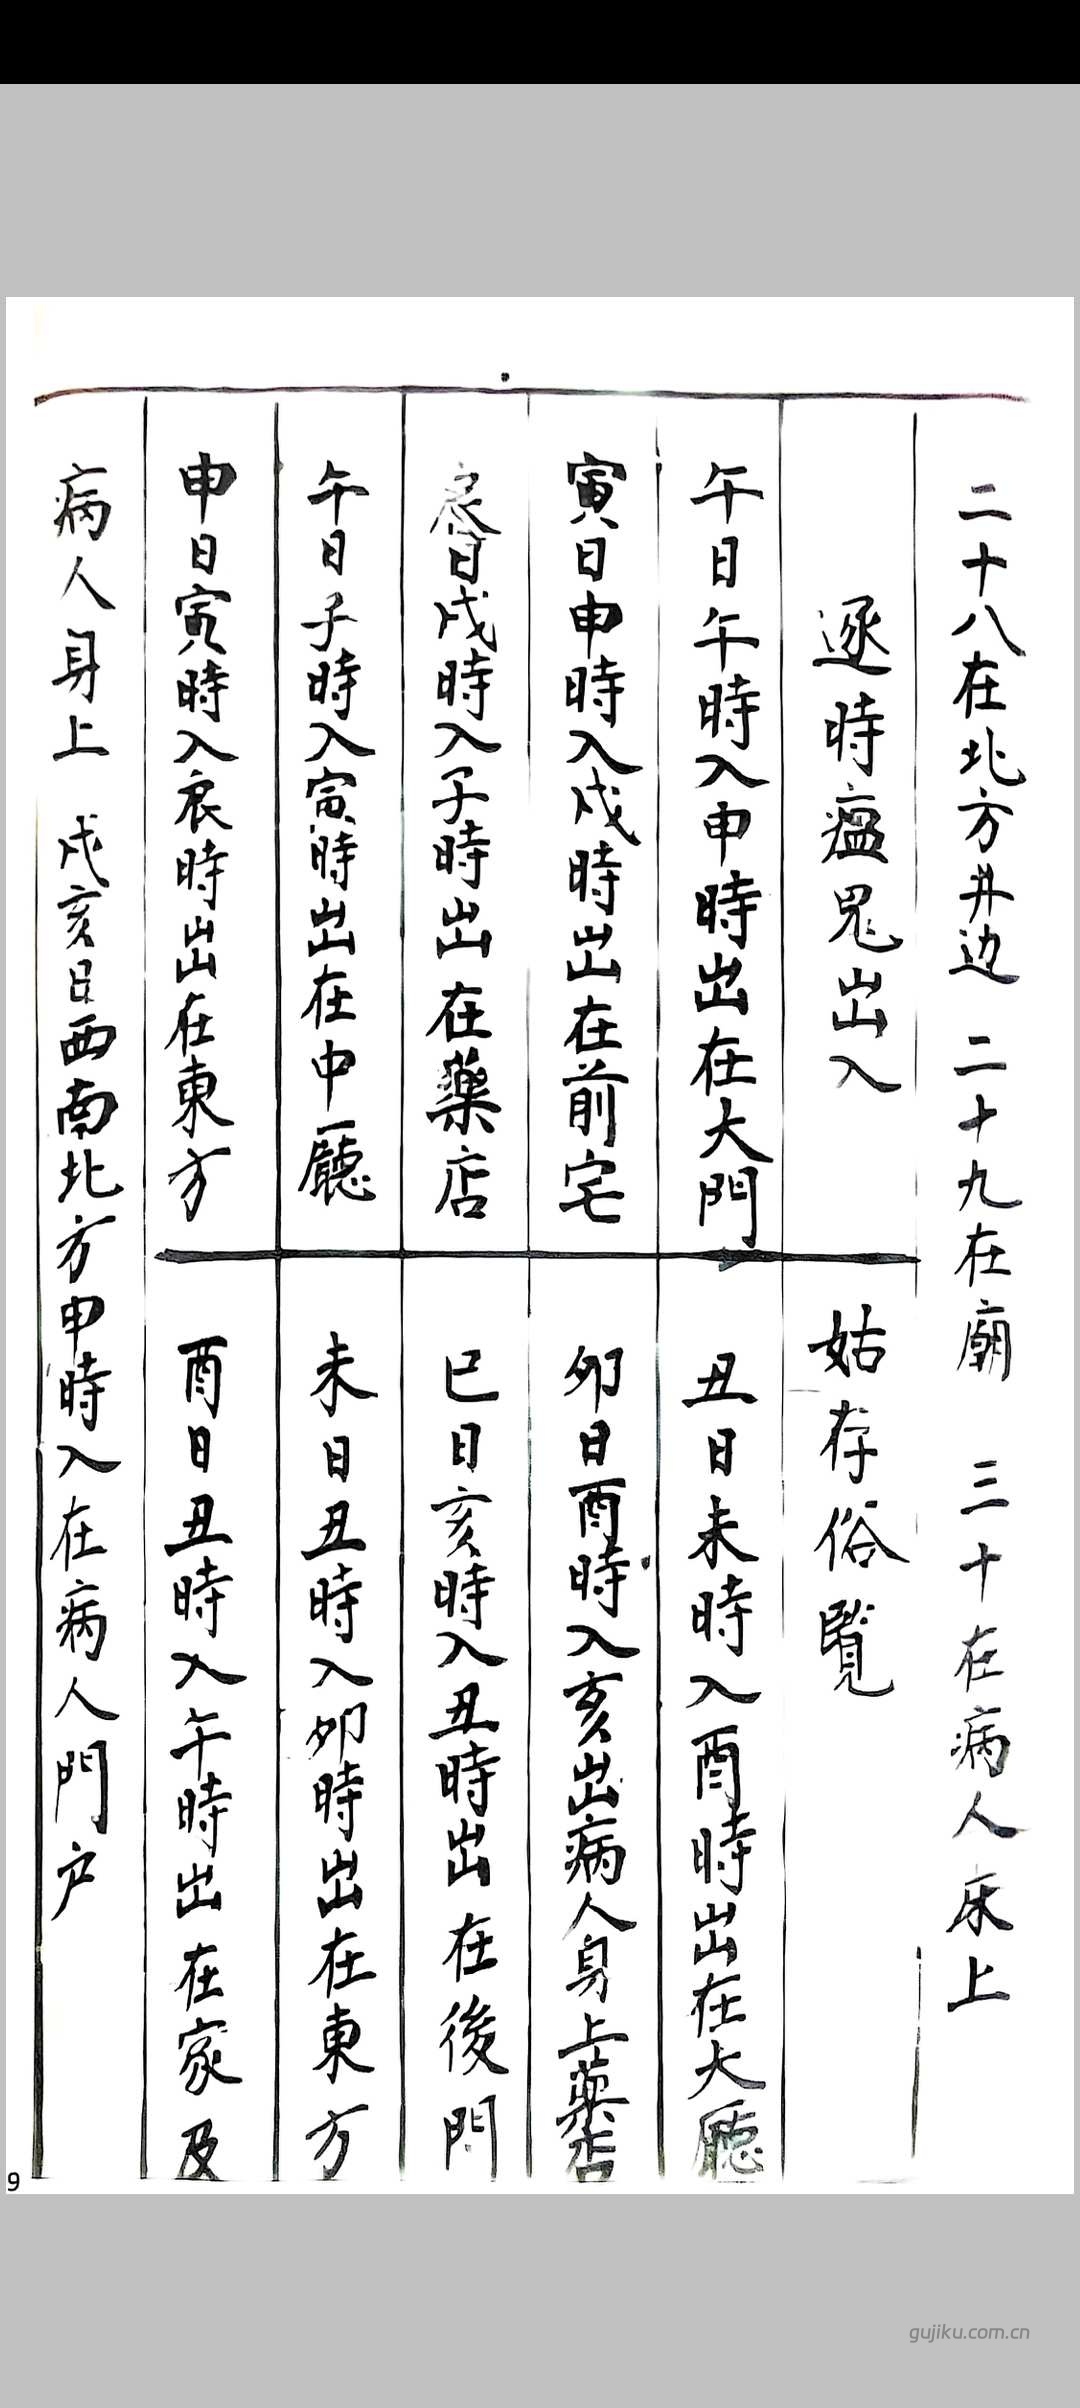 二十八在北方井边 二十九在廟 三十在病人床上
逐時瘟鬼出入
姑存俗覽
午日午時入申時出在大門
丑日未時入酉時出在大廳
寅日申時入戌時出在前宅
卯日酉時入亥出病人身上藥店
辰日戌時入子時出在藥店
巳日亥時入丑時出在後門
午日子時入寅時出在中廳
未日丑時入卯時出在東方
申日寅時入辰時出在東方
酉日丑時入午時出在家及
病人身上 戌亥日西南北方申時入在病人門户
9
gujiku.com.cn